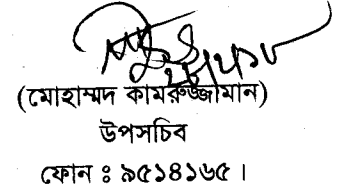 (মোহাম্মদ কামরুজ্জামান)
উপসচিব
ফোন ঃ ৯৫১৪১৬৫।